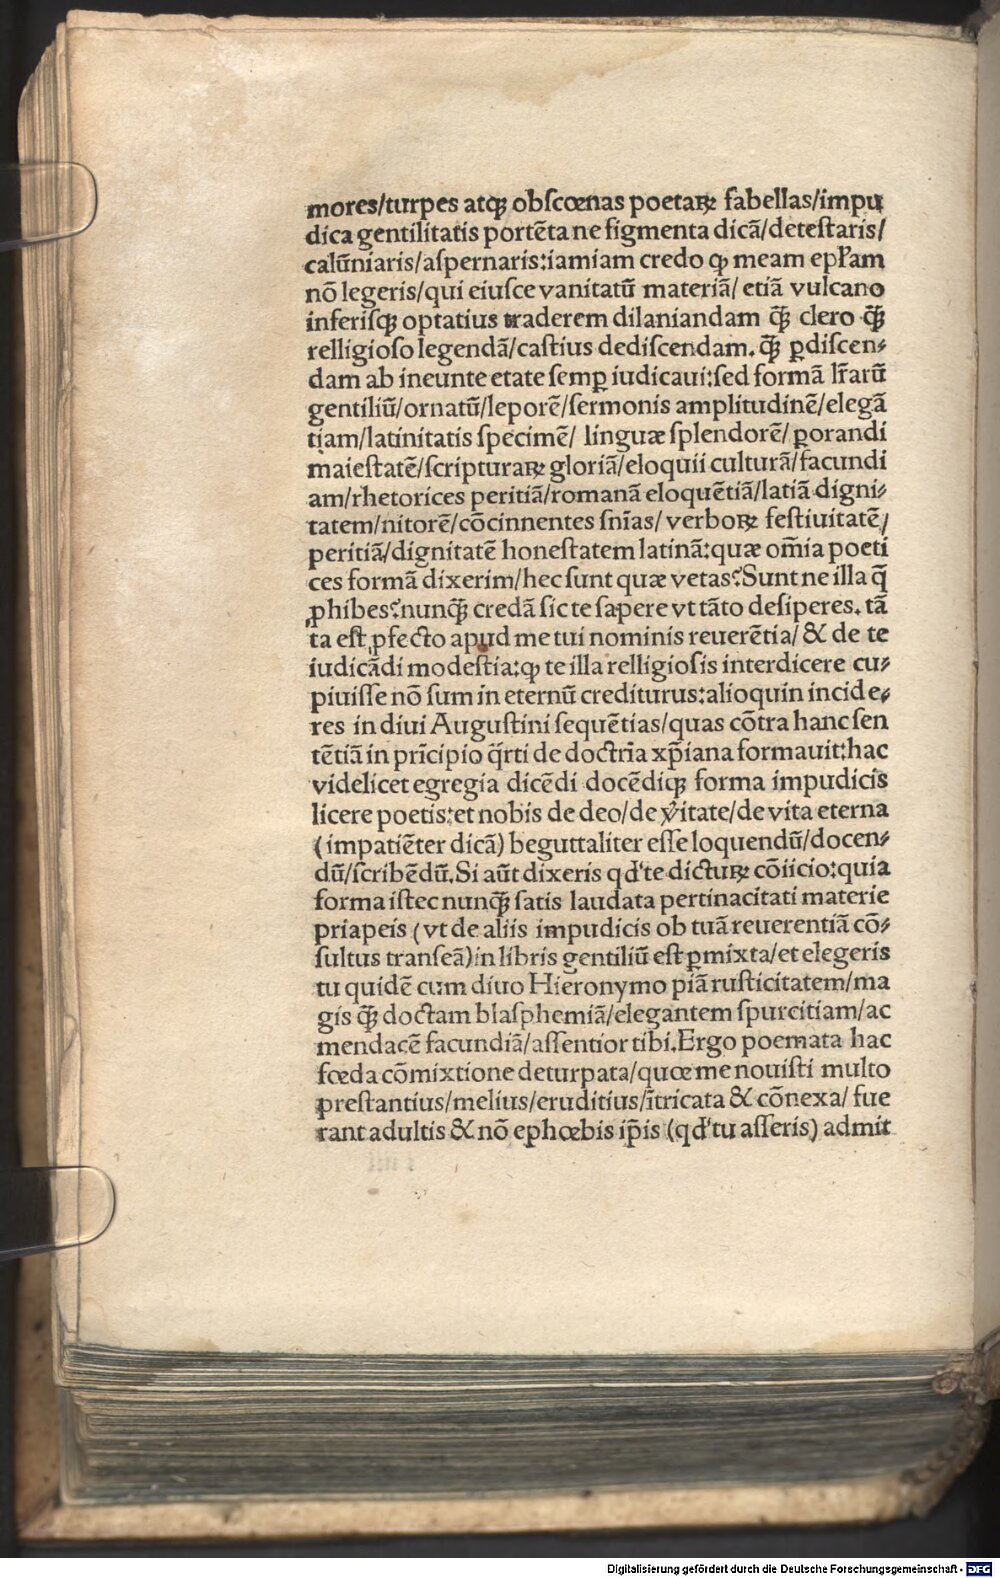 mores/turpes atqꝫ obſcœnas poetaꝝ fabellas/impu
dica gentilitatis portēta ne figmenta dicā/deteſtaris/
calūniaris/aſpernaris:iamiam credo ꝙ meam epl̄am
nō legeris/qui eiuſce vanitatū materiā/ etiā vulcano
inferiſqꝫ optatius traderem dilaniandam q̄ꝫ clero q̄ꝫ
relligioſo legendā/caſtius dediſcendam. q̄ꝫ ꝑdiſcen⸗
dam ab ineunte etate ſemꝑ iudicaui:ſed formā lr̄arū
gentiliū/ornatū/leporē/ſermonis amplitudinē/elegā
tiam/latinitatis ſpecimē/ linguæ ſplendorē/ ꝑorandi
maieſtatē/ſcripturaꝝ gloriā/eloquii culturā/facundi
am/rhetorices peritiā/romanā eloquētiā/latiā digni⸗
tatem/nitorē/cōcinnentes ſnīas/ verboꝝ feſtiuitatē/
peritiā/dignitatē honeſtatem latinā:quæ om̄ia poeti
ces formā dixerim/hec ſunt quæ vetas?Sunt ne illa q̄
ꝓhibes?nunq̄ꝫ credā ſic te ſapere vt tāto deſiperes. tā
ta eſt ꝓfecto apud me tui nominis reuerētia/ & de te
iudicādi modeſtia:ꝙ te illa relligioſis interdicere cu⸗
piuiſſe nō ſum in eternū crediturus:alioquin incide⸗
res in diui Auguſtini ſequētias/quas cōtra hanc ſen
tētiā in prīcipio q̄rti de doctrīa xp̄iana formauit:hac
videlicet egregia dicēdi docēdiqꝫ forma impudicis
licere poetis:et nobis de deo/de v̓itate/de vita eterna
(impatiēter dicā) beguttaliter eſſe loquendū/docen⸗
dū/ſcribēdū. Si aūt dixeris qd̓ te dictuꝝ cōiicio:quia
forma iſtec nunq̄ꝫ ſatis laudata pertinacitati materie
priapeis (vt de aliis impudicis ob tuā reuerentiā cō⸗
ſultus tranſeā)in libris gentiliū eſt ꝑmixta/et elegeris
tu quidē cum diuo Hieronymo piā ruſticitatem/ma
gis q̄ꝫ doctam blaſphemiā/elegantem ſpurcitiam/ac
mendacē facundiā/aſſentior tibi. Ergo poemata hac
fœda cōmixtione deturpata/quœ me nouiſti multo
preſtantius/melius/eruditius/ītricata & cōnexa/ fue
rant adultis & nō ephœbis ip̄is (qd̓ tu aſſeris) admit
Digitalisierung gefördert durch die Deutsche Forschungsgemeinschaft - DFG